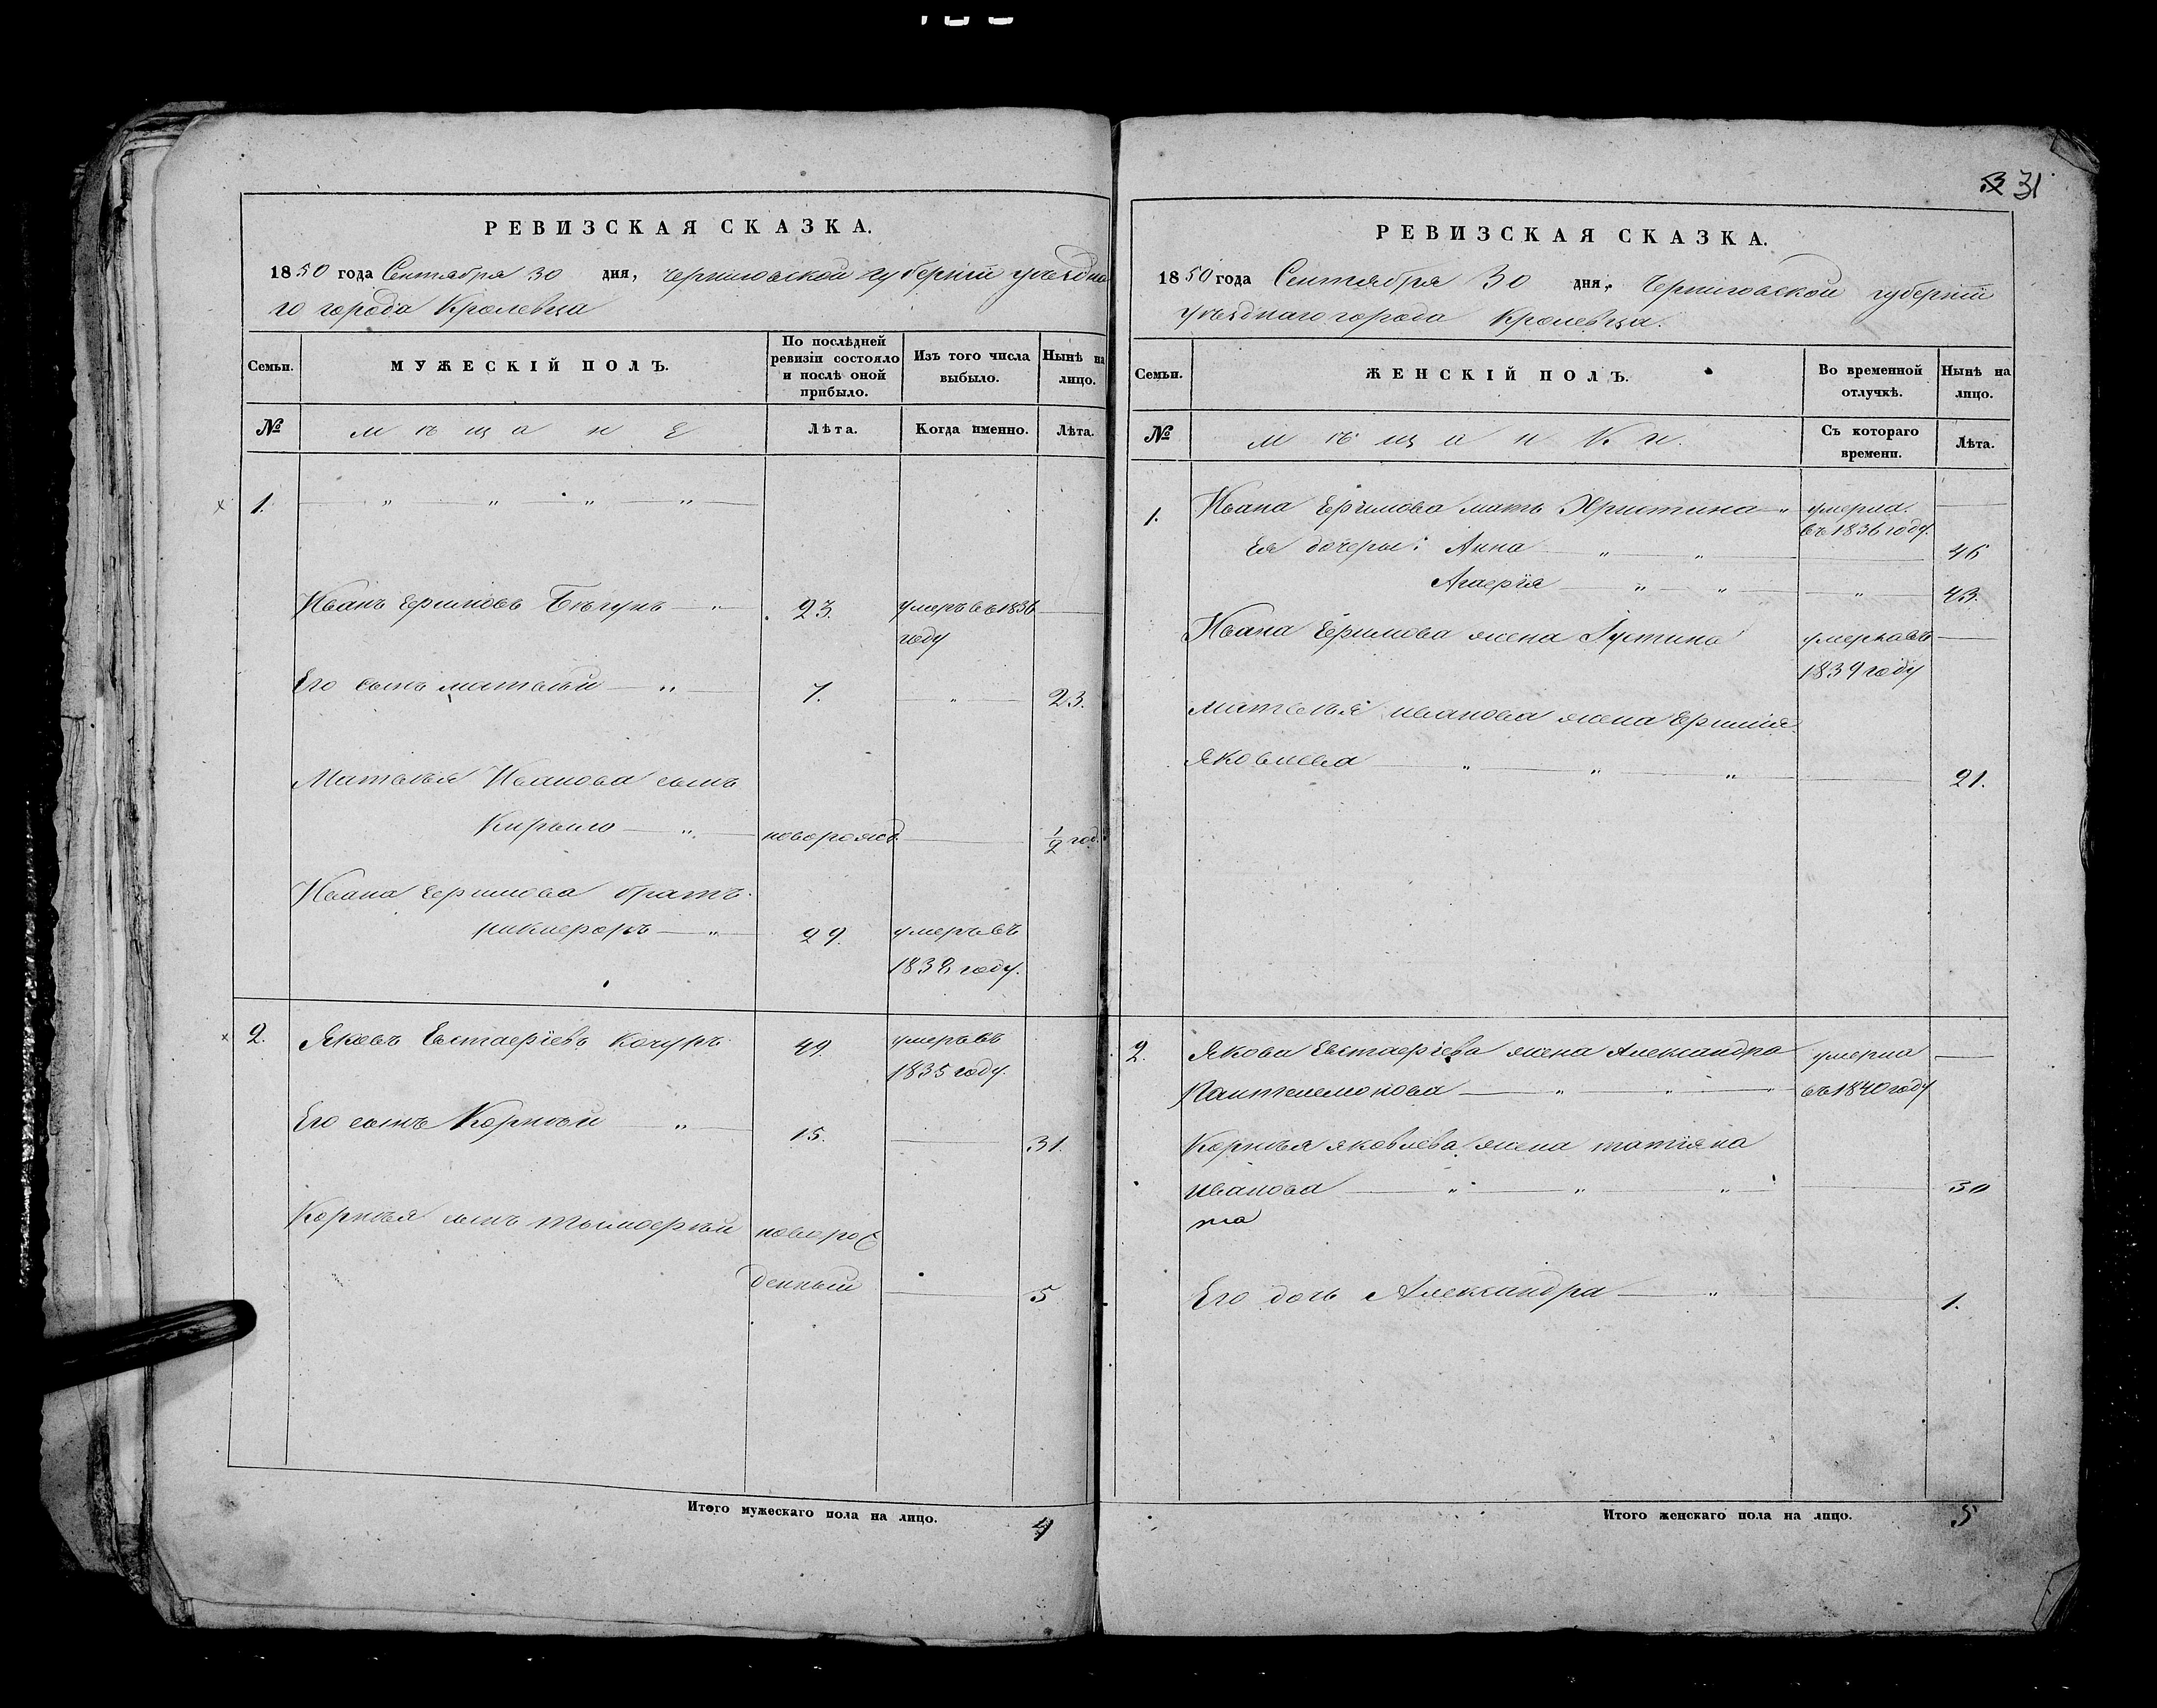 31
РЕВИЗСКАЯ СКАЗКА.
1850 года Сентября 30 дня, Черниговской губерніи уѣздна
го города Кролевца
Семьи.
МУЖЕСКІЙ ПОЛЪ.
По послѣдней ревизіи состояло и послѣ оной прибыло.
Изъ того числа выбыло.
Нынѣ на лицо.
№
Мѣщане
Лѣта.
Когда именно.
Лѣта.
1.
Иванъ Ефимовъ Бѣгунъ 23. умеръ въ 1836
году
Его сынъ Матвѣй 7. 23.
Матвѣя Иванова сынъ
Кирыло новорожд. ½ год.
Ивана Ефимова братъ
Никифоръ 29. умеръ въ
1832 году.
2. Яковъ Евстафіевъ Кочуръ 49. умеръ въ
1835 году.
Его сынъ Корнѣй 15. 31.
Корнѣя сынъ Тымофѣй новорож
денный 5
Итого мужескаго пола на лицо. 4
РЕВИЗСКАЯ СКАЗКА.
1850 года Сентября 30 дня, Черниговской губерніи
уѣзднаго города Кролевца.
Семьи.
ЖЕНСКІЙ ПОЛЪ.
Во временной отлучкѣ.
Нынѣ на лицо.
№
Мѣщанки.
Съ котораго времени.
Лѣта.
1. Ивана Ефимова мать Христина умерла
въ 1836 году.
Ея дочеры: Анна 46
Агафія 43.
Ивана Ефимова жена Іустина умерла въ
1839 году
Матвѣя Иванова жена Ефимія
Яковлева 21.
2. Якова Евстафіева жена Александра умерла
Пантелемонова въ 1840 году
Корнѣя Яковлева жена Татіяна
Иванова 30
та
Его дочь Александра 1.
Итого женскаго пола на лицо. 5